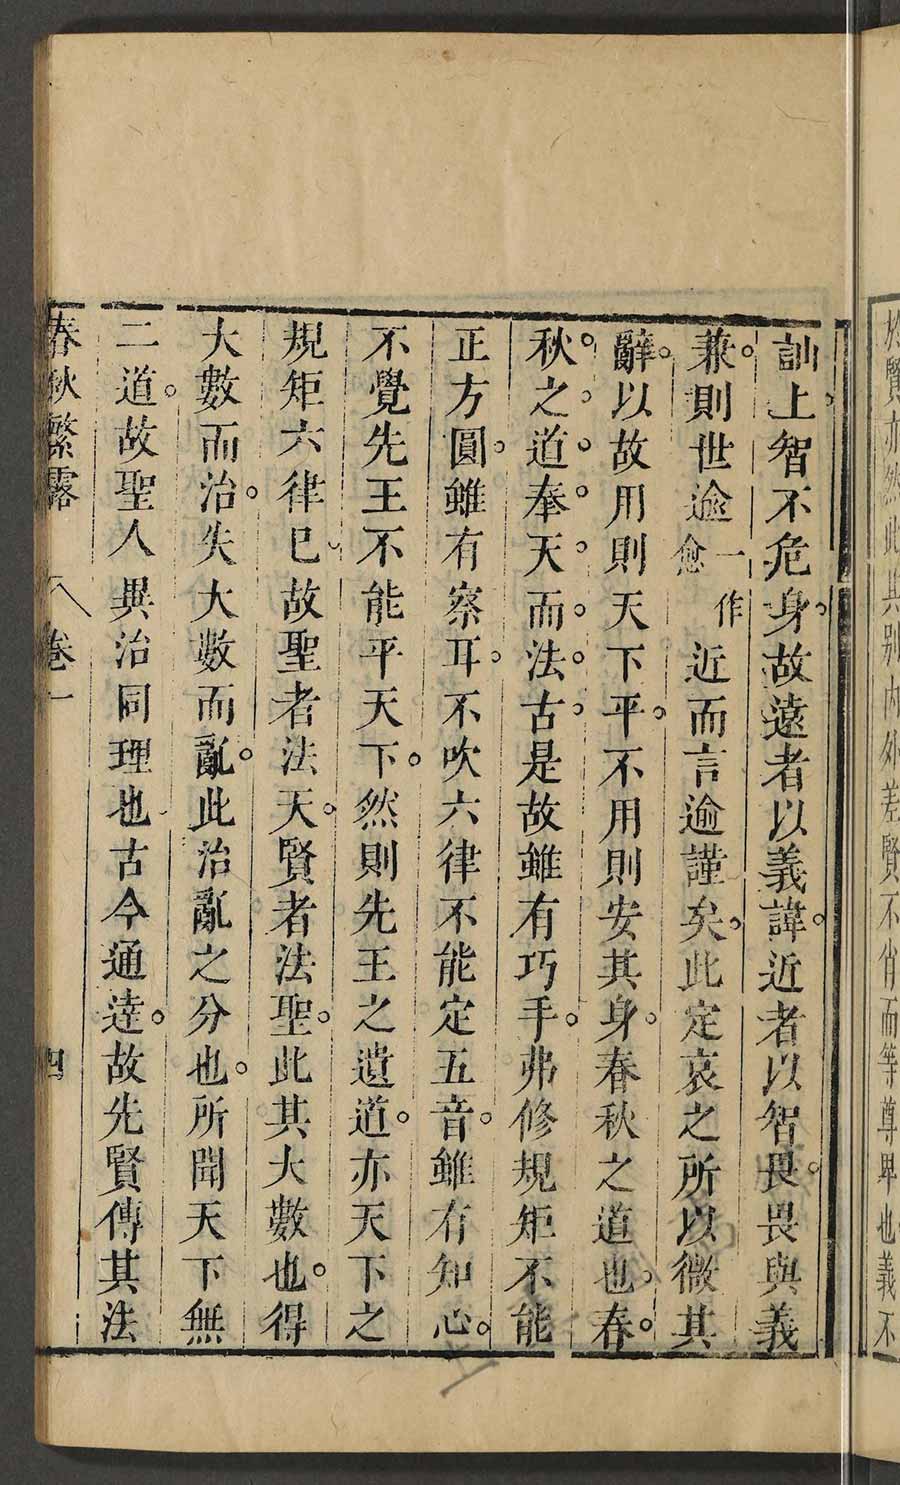 於賢亦然此其別内外差賢不肖而等尊卑也義不
訕上智不危身故遠者以義諱近者以智畏畏與義
兼則世逾一作愈近而言逾謹矣此定哀之所以微其
辭以故用則天下平不用則安其身春秋之道也春
秋之道奉天而法古是故雖有巧手弗修規矩不能
正方圓雖有察耳不吹六律不能定五音雖有知心
不覺先王不能平天下然則先王之遺道亦天下之
規矩六律已故聖者法天賢者法聖此其大數也得
大數而治失大數而亂此治亂之分也所聞天下無
二道故聖人異治同理也古今通達故先賢傳其法
春秋繁露 卷一 四